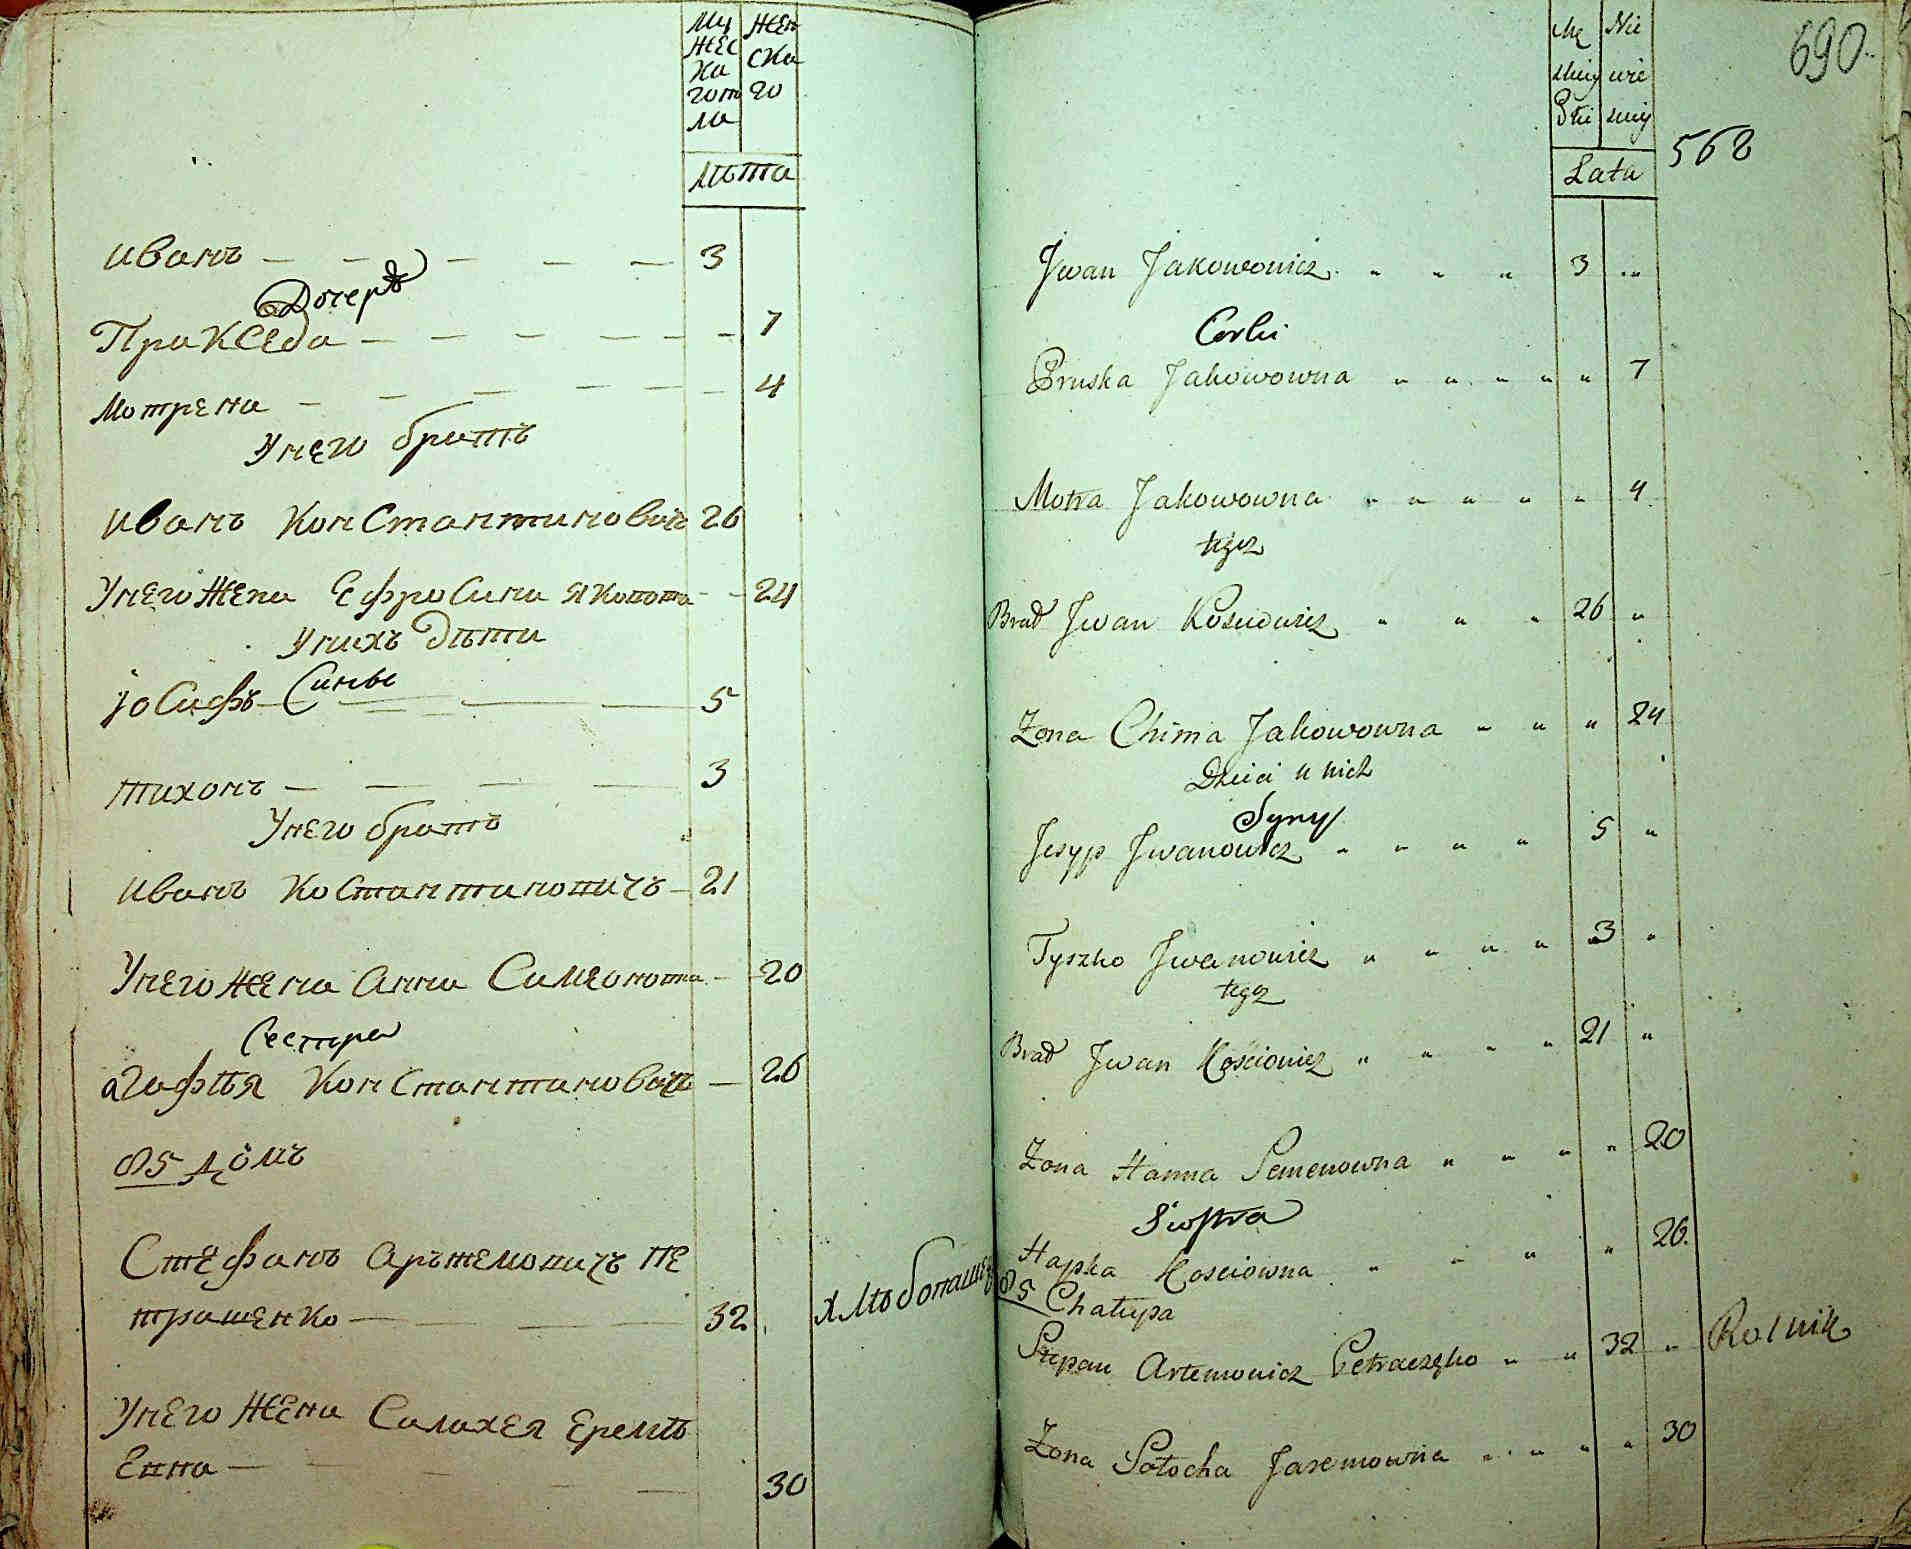 Му
жес
ка
го
Жен
ска
го
Лѣта
Иванъ 3
Дочеръ
Пракседа 7
Мотрена 4
У него братъ
Иванъ Константиновичъ 26
У него жена Ефросина 24
У нихъ дѣти
Сины
Іосифъ 5
Тихонъ 3
У него братъ
Иванъ Костантиновичъ 21
У него жена Анна Симеонова 20
Сестра
Агафѣя Константинова 26
85 домъ
Стефанъ Арътемовичъ Пе
трашенко 32 Хлѣбопашецъ
У него жена Саляхея Еремѣ
евна 30
690
Mę
zkiey
Płci
Nie
wie
sciey
Lata
562
Jwan Jakowowicz 3
Corki
Pruska Jakowowna 7
Motra Jakowowna 4
tegoz
Brat Jwan Kosciowicz 26
Zona Chima Jakowowna 24
Dzieci u nich
Syny
Jesyp Jwanowicz 5
Tyszko Jwanowicz 3
tegoz
Brat Jwan Kosciowicz 21
Zona Hanna Semenowna 20
Siostra
Hapka Kosciowna 26
85 Chałupa
Stepan Artemowicz Petraszenko 32 Rolnik
Zona Sołocha Jaremowna 30